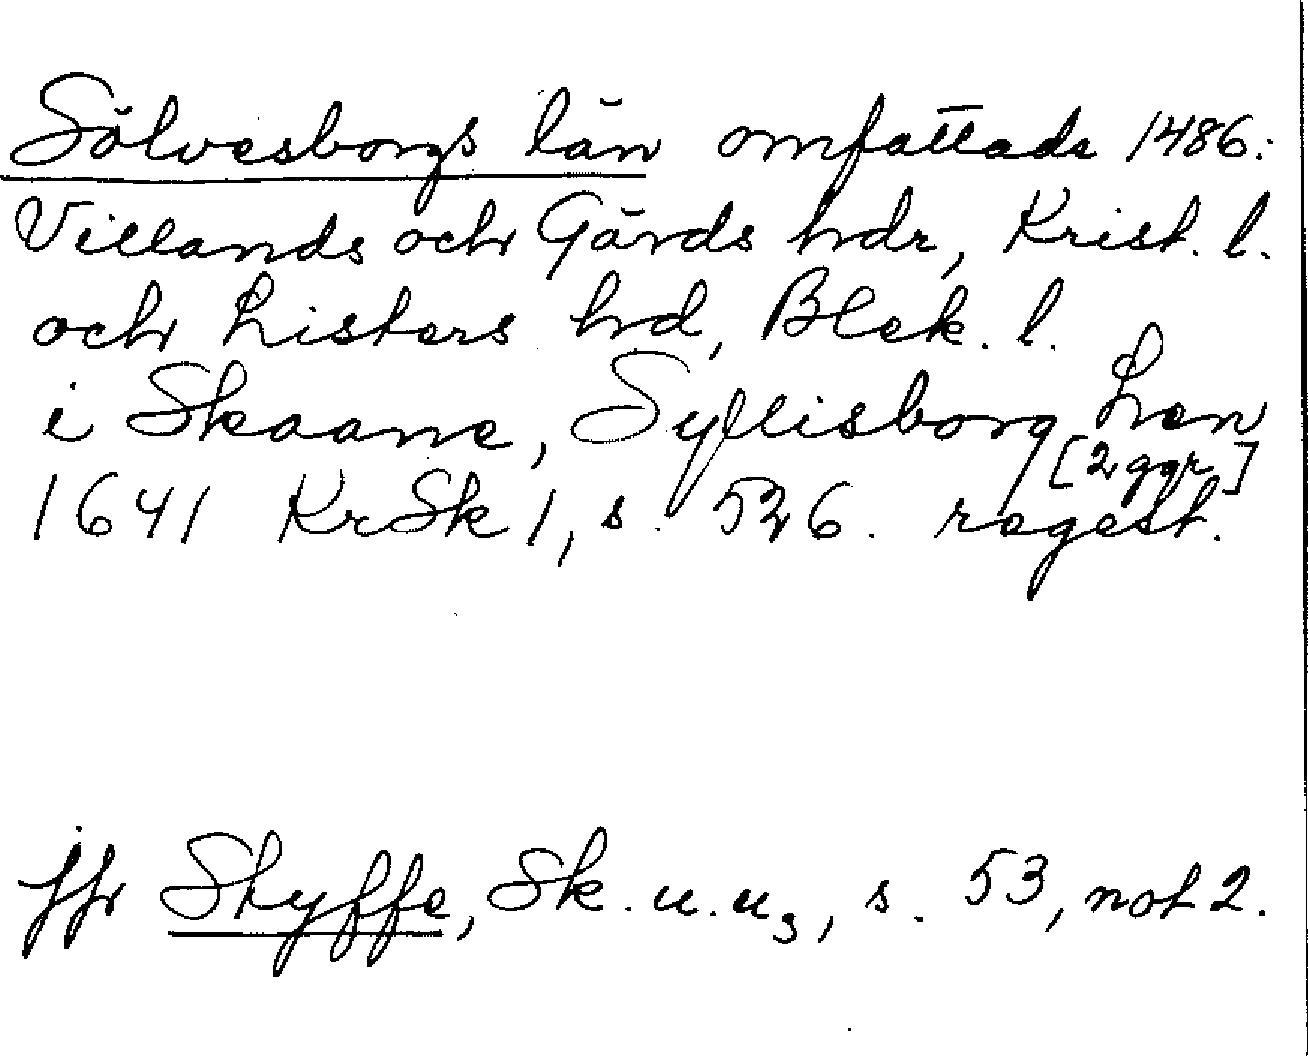 Sölvesborgs län omfattade 1486:
Villands och Gärds hdr, Krist. l.
och Listers hd, Blek. l.
i Skaane, Syllisborg Len
[2 ggr]
1641 KrSk 1, s. 526. regest.
jfr Styffe, Sk. u. u3, s. 53, not 2.